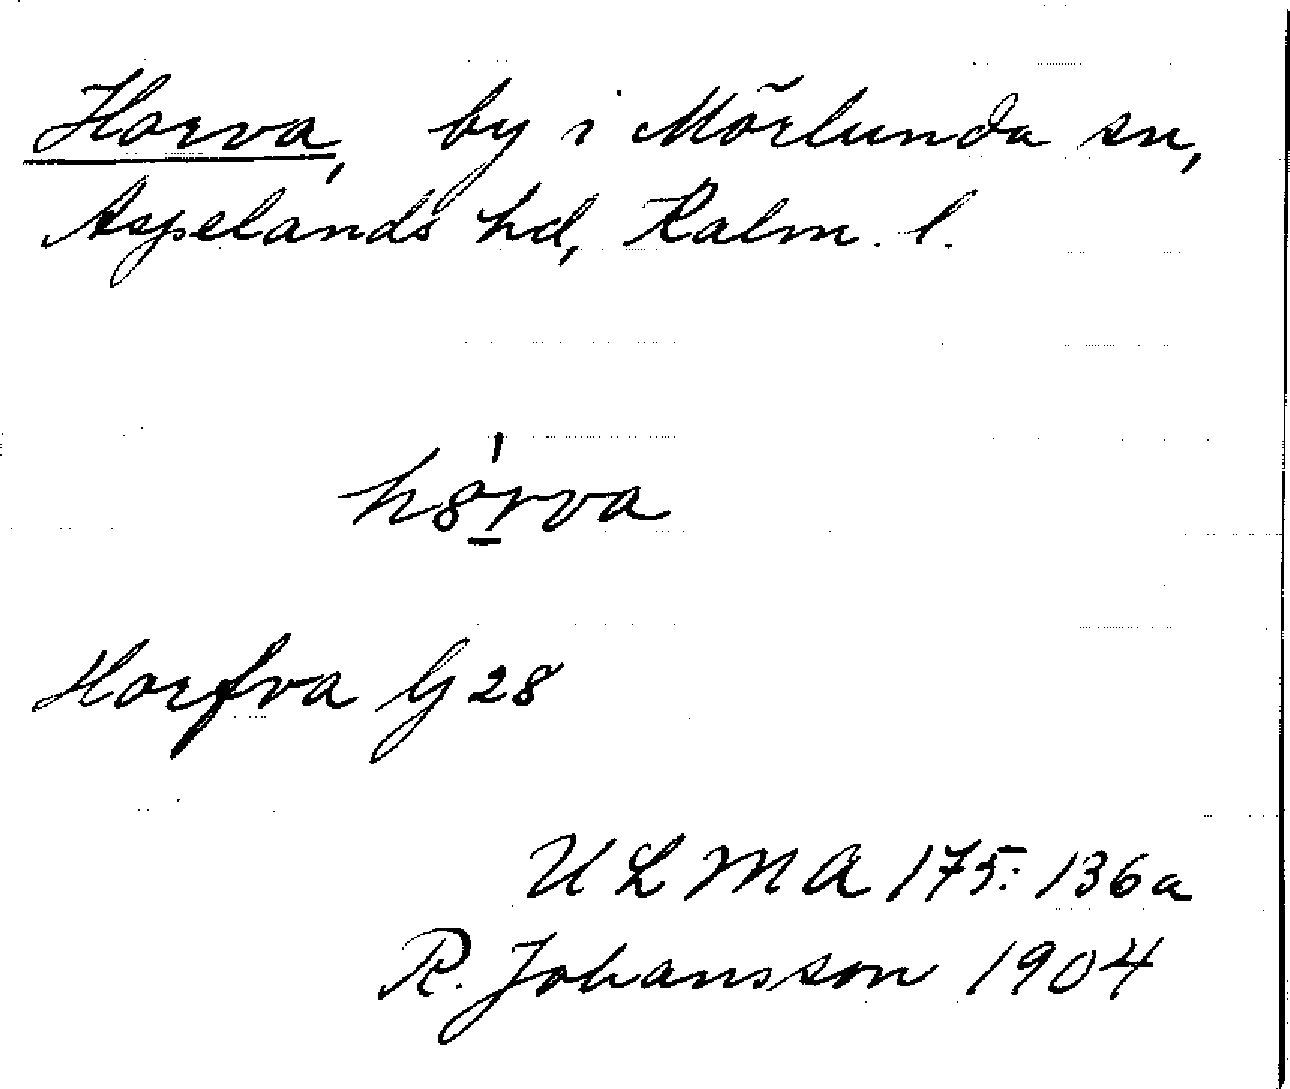 Horva, by i Mörlunda sn,
Aspelands hd, Kalm. l.
h8̠́rva
Horfva G 28
ULMA 175:136a
R. Johansson 1904